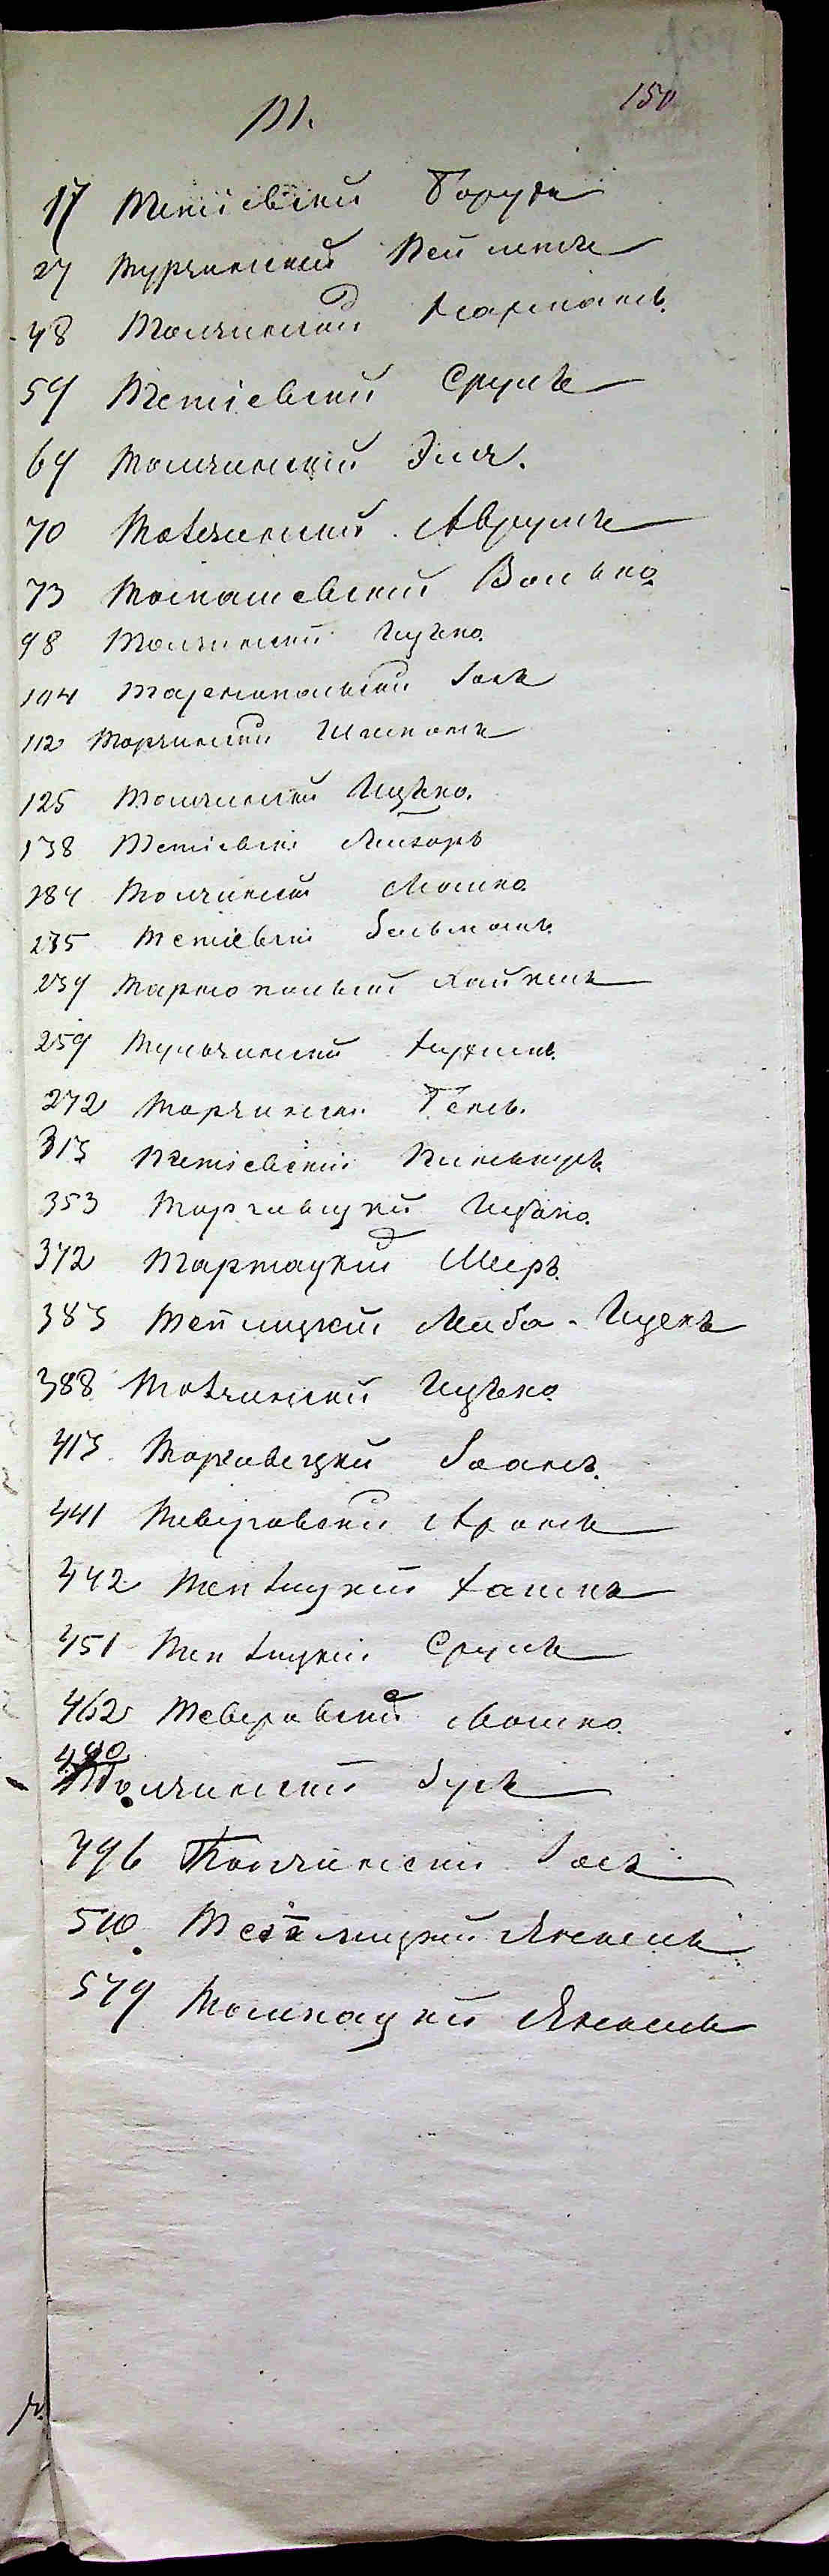 Т.
150
17 Тетіевскій Борухъ
27 Турчинскій Лейзеръ
48 Толчинскій Нахманъ
54 Тетіевскій Срулъ
64 Толчинскій Эля.
70 Толчинскій Аврумъ
73 Томашевскій Волько
98 Толчинскій Ицько
104 Тарнопольскій Іосъ
112 Торчинскій Шлиома
125 Толчинскій Ицько.
138 Тетіевскі Лейзоръ
184 Толчинскій Мошко
235 Тетіевскі Зельманъ
239 Тарнопольскій Хаймъ
259 Тульчинскій
272 Торчински
313 Тетіевскій Пинькусъ
353 Торговицкій Ицько.
372 Тартацкій Меиръ
383 Теплицкій Лейба-Ицекъ
388 Толчинскій Ицько
413 Торговецкій
441 Теверовскій Аронъ
442 Теплицкій
451 Теплицкій Срулъ
462 Теверовскій Мошко
490 Толчинскій Зусъ
496 Толчинскій Іосъ
510 Теплицкій Янкель
549 Толмацкій Янкель